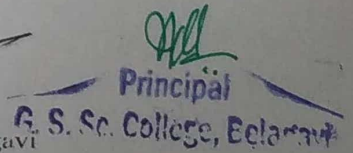 Principal
G. S. Sc. College, Belagavi
gavi